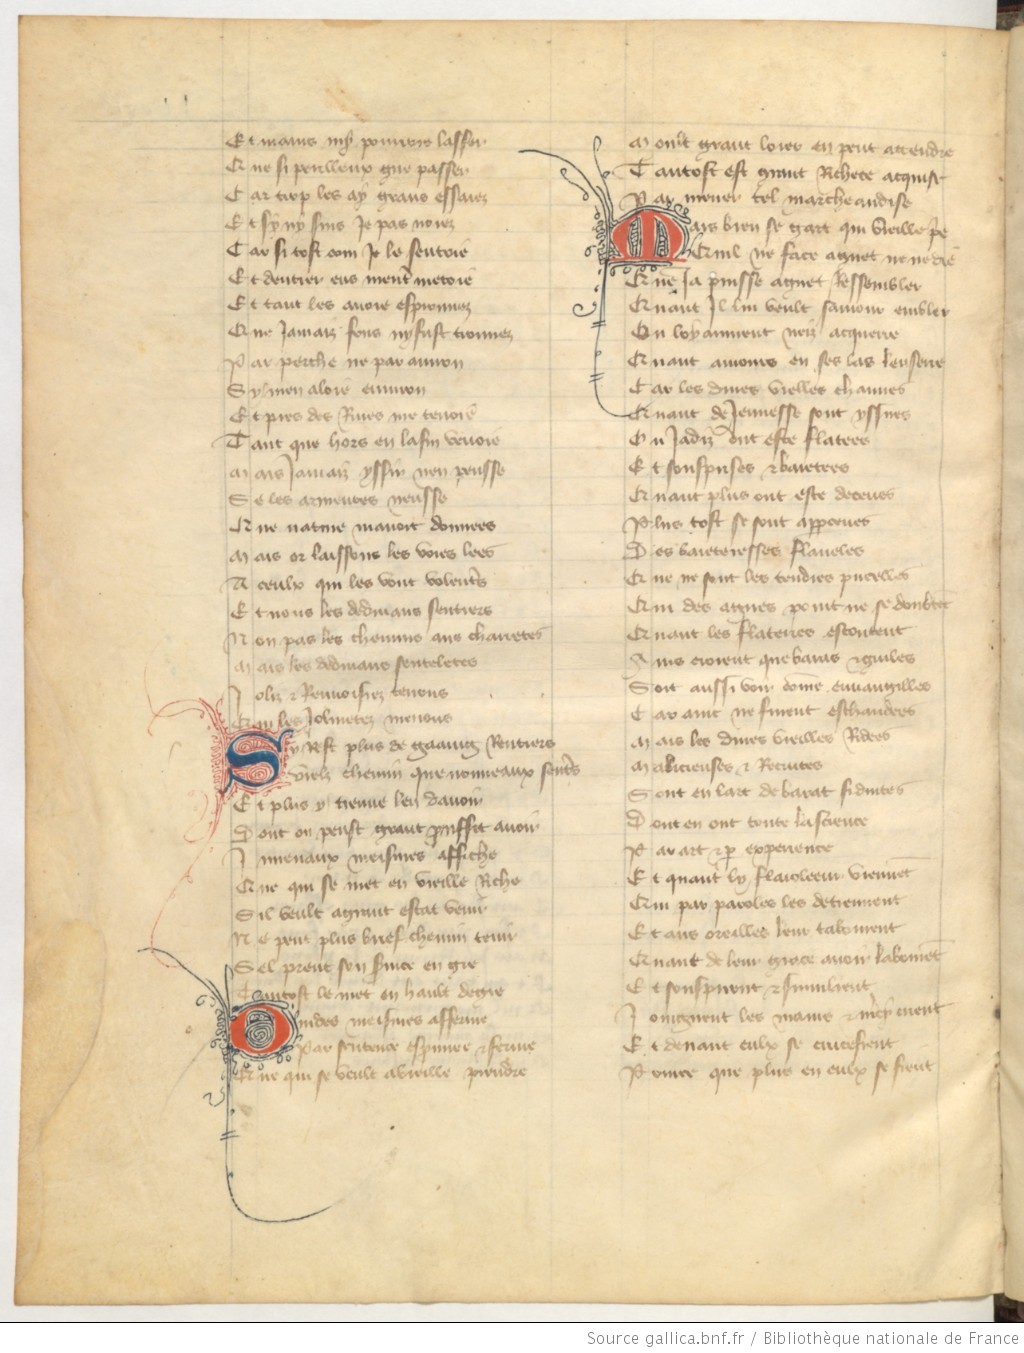 Et mains my pourroie lasser
Que si perilleux gue passer
Car trop les ay grans essaiez
Et sy ny suis Je pas noiez
Car si tost com Je le sentoie
Et dentrer ens ment metoie
Et tant les avoie esprouvez
Que Jamaiz fons ny fust trouvez
Par perche ne par aviron
Sy men aloie environ
Et pres des Rives me tenoie
Tant que hors en la fin venoie
Mais Jamaiz yssir nen peusse
Se les armeures neusse
Que nature mavoit donnees
Mais or laissons les voies lees
A ceulx qui les vont volentrs
Et nous les dedmans sentiers
Non pas les chemins aus charretes
Mais les dedmans senteletes
Jolis et Renvoisiez tenons
Qui les Jolivetez menons
Sy Rest plus de gaaing Rentiers
Vielz chemin que nouveaux sentrs
Et plus y treuve len davoir
Dont on peust grant prouffit avoir
Juvenaux meismes affiche
Que qui se met en vieille Riche
Sil veult a grant estat venir
Ne peut plus brief chemin tenir
Sel prent son service en gre
Tantost le met en hault degre
Ovides meismes afferme
Par sentence esprivee et ferme
Que qui se veult a vieille prendre
Moult grant loier en peut attendre
Tantost est grant Richece acquise
Par mener tel marcheandise
Mais bien se gart qui vieille pe
Quil ne face aguet ne ne die
Que Ja puisse aguet Ressembler
Quant Il lui veult samour embler
Ou loyaument neiz acquerre
Quant amours en ses las lenserre
Car les dures vielles chanues
Quant de Jennesse sont yssues
Ou Jadiz ont este flatees
Et souspuses et baretees
Quant plus ont este deceues
Plus tost se sont apperceues
Des bareteresses flaveles
Que ne sont les tendres pucelles
Qui des aguez point ne se doubtent
Quant les flateurs escoutent
Ains croient que baras et guiles
Soit aussi voir come euvangilles
Car ainc ne furent eschaudees
Mais les dures vieilles Ridees
Malicieuses et Recuites
Sont en lart de barat si duites
Dont en ont toute la science
Par art et par experience
Et quant ly flaioleeur viennent
Qui par paroles les detiennent
Et aus oreilles leur tabourent
Quant de leur grace avoir labourent
Et souspirent et sumilient
Joingnent les mains et mercy crient
Et devant eulx se crucefient
Pource que plus en eulx se fient
Source gallica.bnf.fr / Bibliothèque nationale de France